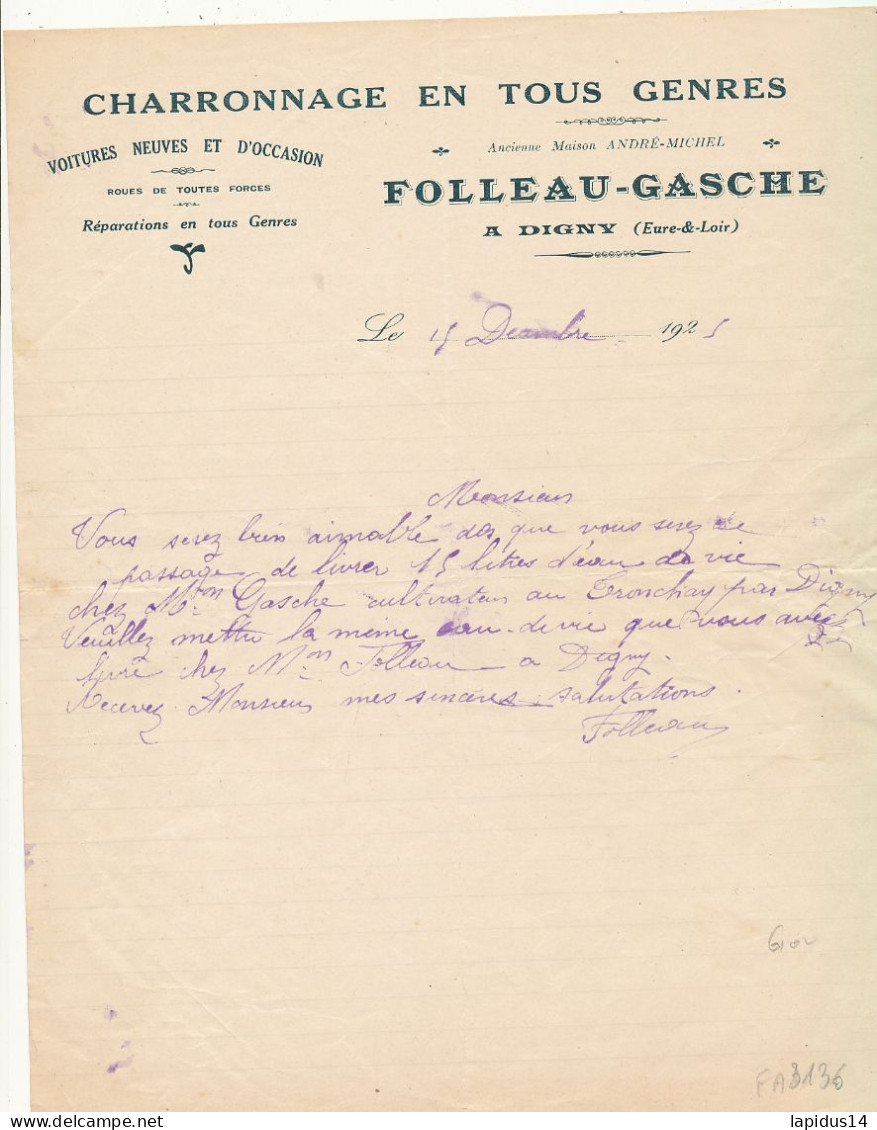 CHARRONNAGE EN TOUS GENRES
VOITURES NEUVES ET D'OCCASION
ROUES DE TOUTES FORCES
Réparations en tous Genres
Ancienne Maison ANDRÉ-MICHEL
FOLLEAU-GASCHE
A DIGNY (Eure-&-Loir)
Le 15 Decembre 1925
Monsieur
Vous serez bien aimable dos que vous serez de
passage de livrer 15 litres d'eau de vie
chez Mr Gasche cultivateur au Tronchay par Digny
Veuillez mettre la même eau-de vie que vous avez
livré chez Mr Folleau a Digny.
Recevez Monsieur mes sincères salutations.
Folleau
FA3136
lapidus14